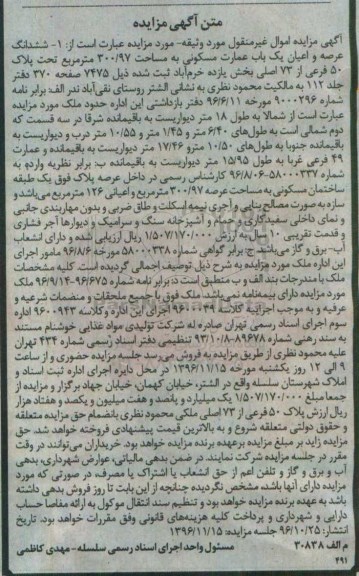 متن آگهی مزایده
آگهی مزایده اموال غیرمنقول مورد وثیقه- مورد مزایده عبارت است از: ۱- ششدانگ
عرصه و اعیان یک باب عمارت مسکونی به مساحت ۳۰۰/۹۷ مترمربع تحت پلاک
۵۰ فرعی از ۷۳ اصلی بخش یازده خرم‌آباد ثبت شده ذیل ۷۴۷۵ صفحه ۳۷۰ دفتر
جلد ۱۱۲ به مالکیت محمود نظری به نشانی الشتر روستای نقی‌آباد نذر الف: برابر نامه
شماره ۹۰۰۰۲۹۶ مورخه ۹۶/۶/۱۱ دفتر بازداشتی این اداره حدود ملک مورد مزایده
عبارت است از شمالا به طول ۱۸ متر دیواریست به باقیمانده شرقا در سه قسمت که
دوم شمالی است به طول‌های ۶/۴۰ متر و ۱/۴۵ متر و ۱۰/۵۵ متر درب و دیواریست به
باقیمانده جنوبا به طول‌های ۱۰/۵۰ مترو ۱۷/۴۶ متر دیواریست به باقیمانده و عمارت
۴۹ فرعی غربا به طول ۱۵/۹۵ متر دیواریست به باقیمانده ب: برابر نظریه وارده به
شماره ۵۸۰۰۰۳۳۷-۹۶/۸/۰۶ کارشناس رسمی در داخل عرصه پلاک فوق یک طبقه
ساختمان مسکونی به مساحت عرصه ۳۰۰/۹۷ مترمربع و اعیانی ۱۲۶ مترمربع می‌باشد و
سازه به صورت مصالح بنایی و آجری نیمه اسکلت و طاق ضربی و بدون مهاربندی جانبی
و نمای داخلی سفیدکاری و حمام و آشپزخانه سنگ و سرامیک و دیوارها آجر فشاری
و قدمت تقریبی ۱۰ سال به ارزش ۱/۵۰۷/۱۷۰/۰۰۰ ریال ارزیابی شده و دارای انشعاب
آب- برق و گاز می‌باشد. ج: برابر گواهی شماره ۵۸۰۰۰۳۳۸ مورخه ۹۶/۸/۶ مامور اجرای
این اداره ملک مورد مزایده به شرح ذیل توصیف اجمالی گردیده است. کلیه مشخصات
ملک با مندرجات بند الف و ب منطبق است د: برابر نامه شماره ۹۶/۶۷۵-۹۶/۹/۱۴ ملک
مورد مزایده دارای بیمه‌نامه نمی‌باشد. ملک فوق با جمیع ملحقات و منضمات شرعیه و
عرفیه و به موجب اجرائیه کلاسه ۹۶۰۰۰۳۹ اجرای این اداره و کلاسه ۹۶۰۰۹۴۳ اداره
سوم اجرای اسناد رسمی تهران صادره له شرکت تولیدی مواد غذایی خوشنام مستند
به سند رهنی شماره ۸۹۶۷۸-۹۳/۱۰/۸ تنظیمی دفتر اسناد رسمی شماره ۴۳۴ تهران
علیه محمود نظری از طریق مزایده به فروش می‌رسد جلسه مزایده حضوری و از ساعت
۹ الی ۱۲ روز یکشنبه مورخه ۱۳۹۶/۱۱/۱۵ در محل دایره اجرای اداره ثبت اسناد و
املاک شهرستان سلسله واقع در الشتر، خیابان کهمان، خیابان جهاد برگزار و مزایده از
جمعا مبلغ ۱/۵۰۷/۱۷۰/۰۰۰ یک میلیارد و پانصد و هفت میلیون و یکصد و هفتاد هزار
ریال ارزش پلاک ۵۰ فرعی از ۷۳ اصلی ملکی محمود نظری بانضمام حق مزایده متعلقه
و حقوق دولتی متعلقه شروع و به بالاترین قیمت پیشنهادی فروخته خواهد شد. حق
مزایده زاید بر مبلغ مزایده برعهده برنده مزایده خواهد بود. خریداران می‌توانند در وقت
مقرر در جلسه مزایده شرکت نمایند. در ضمن بدهی مالیاتی، عوارض شهرداری، بدهی
آب و برق و گاز و تلفن اعم از حق انشعاب یا اشتراک یا مصرف، در صورتی که مورد
مزایده دارای آنها باشد مشخص نگردیده چنانچه از این بابت تا روز فروش بدهی داشته
باشد به عهده برنده مزایده خواهد بود و تنظیم سند انتقال موکول به ارائه مفاصا حساب
دارایی و شهرداری و پرداخت کلیه هزینه‌های قانونی وفق مقررات خواهد بود. تاریخ
انتشار: ۹۶/۱۰/۲۵ جلسه مزایده: ۱۳۹۶/۱۱/۱۵
م الف ۳۰۸۳۸ مسئول واحد اجرای اسناد رسمی سلسله- مهدی کاظمی
۴۹۱